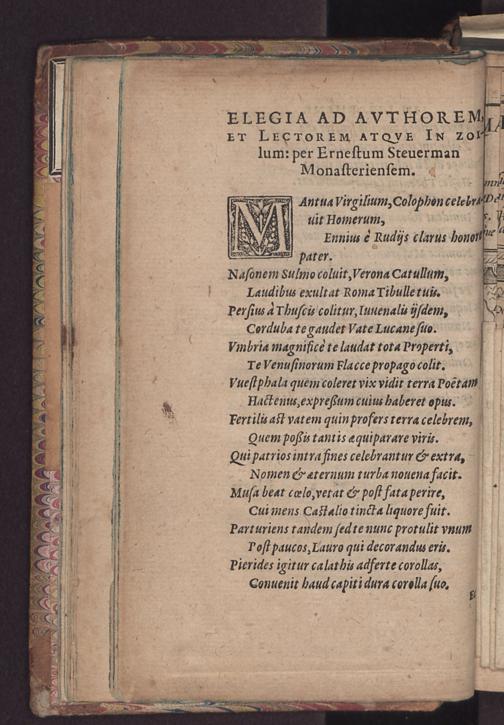 ELEGIA AD AVTHOREM,
ET LECTOREM ATQVE IN ZOI-
lum: per Erneſtum Steuerman
Monaſterienſem.
MAntua Virgilium, Colophon celebra-
uit Homerum,
Ennius è Rudijs clarus honore
pater.
Naſonem Sulmo coluit, Verona Catullum,
Laudibus exultat Roma Tibulle tuis.
Perſius à Thuſcis colitur, Iuuenalis ijſdem,
Corduba te gaudet Vate Lucane ſuo.
Vmbria magnificè te laudat tota Properti,
Te Venuſinorum Flacce propago colit.
Vueſtphala quem coleret vix vidit terra Poëtam
Hactenus, expreßum cuius haberet opus.
Fertilis aſt vatem quin profers terra celebrem,
Quem poßis tantis æquiparare viris.
Qui patrios intra fines celebrantur & extra,
Nomen & æternum turba nouena facit.
Muſa beat cœlo, vetat & poſt fata perire,
Cui mens Caſtalio tincta liquore fuit.
Parturiens tandem ſed te nunc protulit vnum
Poſt paucos, Lauro qui decorandus eris.
Pierides igitur calathis adferte corollas,
Convenit haud capiti dura corolla ſuo.